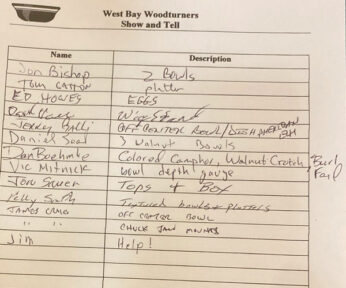 West Bay Woodturners
Show and Tell
Name Description
Jon Bishop 2 Bowls
Tom Catton platter
ED HOWES EGGS
Wig Stand
Jerry OFF CENTER BOWL/DISH
Daniel Seal 3 Walnut Bowls
Dan Boehmke Colored Campher, Walnut Crotch, Burl
Vic Mitnick bowl depth gauge Fail
Jon Tops & Box
Textured bowls & platters
JAMES CRAIG OFF CENTER BOWL
" " CHUCK JAW MOUNTS
Jim Help!